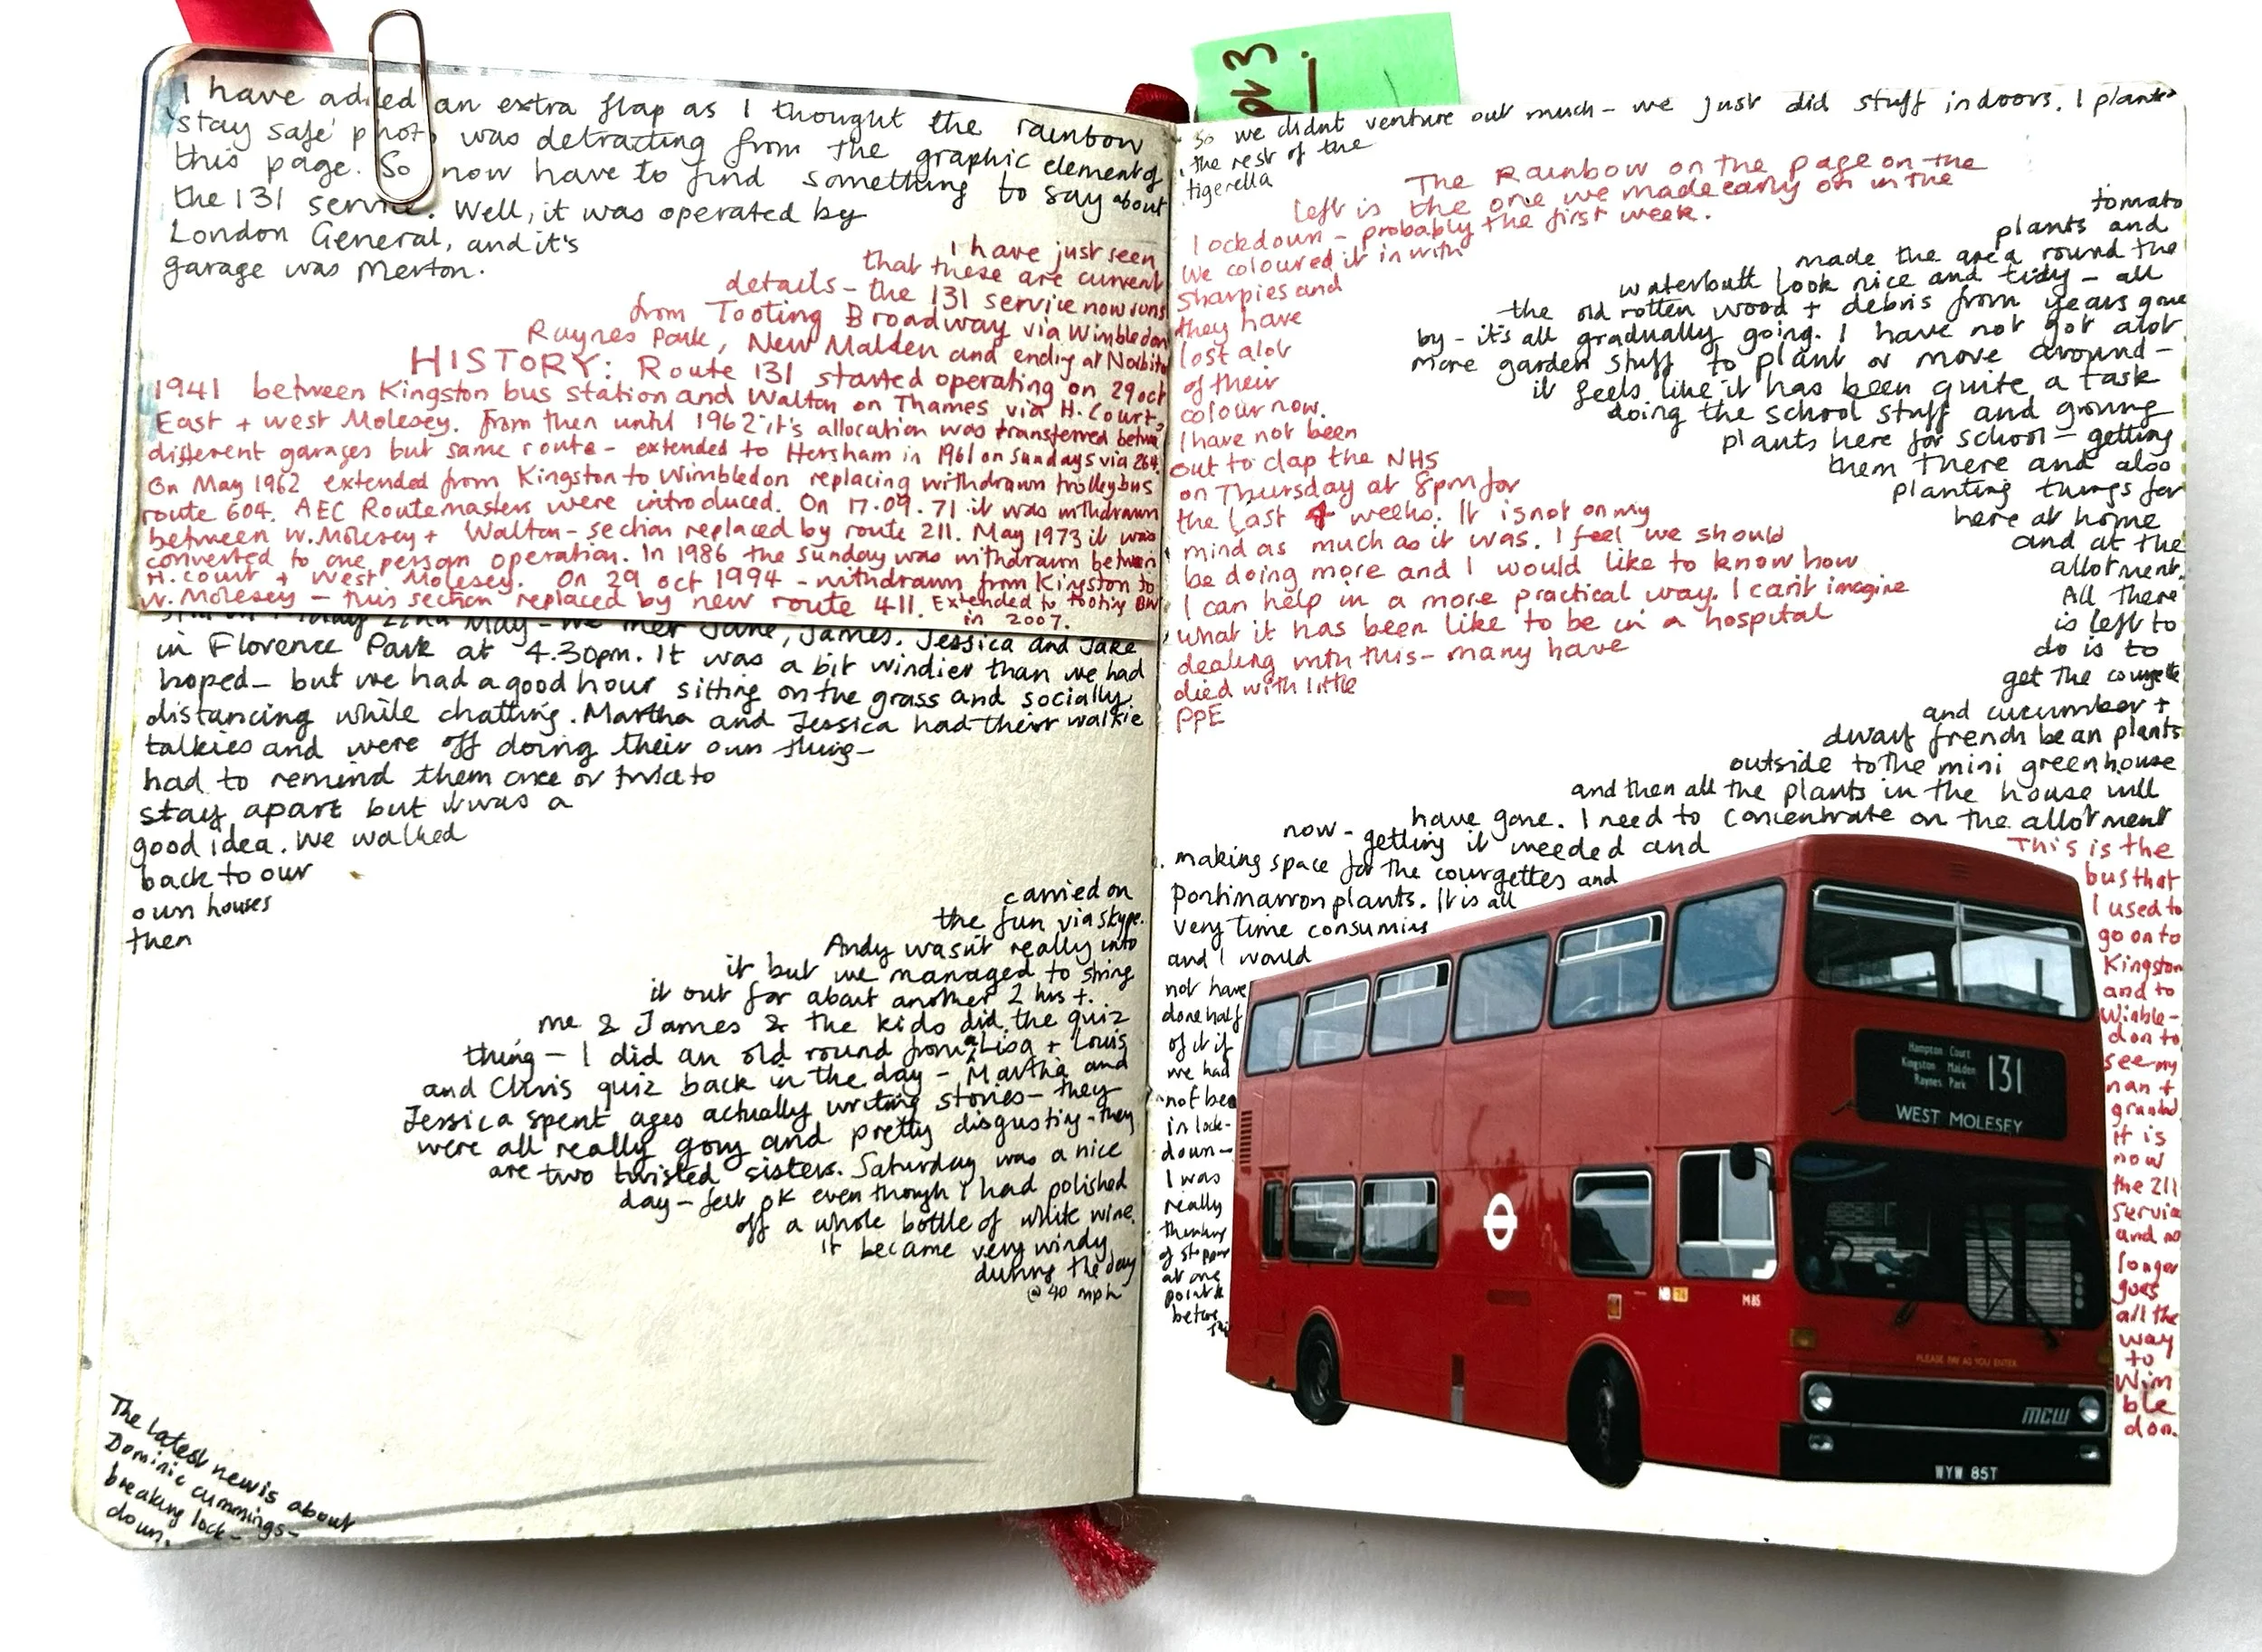 I have added an extra flap as I thought the rainbow
'stay safe' photo was detracting from the graphic element of
this page. So now have to find something to say about
the 131 service. Well, it was operated by
London General, and it's
garage was Merton.
I have just seen
that these are current
details - the 131 service now runs
from Tooting Broadway via Wimbledon
Raynes Park, New Malden and ending at Norbiton
HISTORY: Route 131 started operating on 29 oct
1941 between Kingston bus station and Walton on Thames via H. Court,
East + West Molesey. From then until 1962 it's allocation was transferred between
different garages but same route - extended to Hersham in 1961 on Sundays via 264.
On May 1962 extended from Kingston to Wimbledon replacing withdrawn trolleybus
route 604. AEC Routemasters were introduced. On 17.09.71 it was withdrawn
between W. Molesey + Walton - section replaced by route 211. May 1973 it was
converted to one person operation. In 1986 the Sunday was withdrawn between
H. Court + West Molesey. On 29 oct 1994 - withdrawn from Kingston to
W. Molesey - this section replaced by new route 411. Extended to Tooting BW
in 2007.
22nd May - we met Jane, James, Jessica and Jake
in Florence Park at 4.30pm. It was a bit windier than we had
hoped - but we had a good hour sitting on the grass and socially
distancing while chatting. Martha and Jessica had their walkie
talkies and were off doing their own thing -
had to remind them once or twice to
stay apart but it was a
good idea. We walked
back to our
own houses
then
carried on
the fun via skype.
Andy wasn't really into
it but we managed to string
it out for about another 2 hrs +.
me & James & the kids did the quiz
thing - I did an old round from a Lisa + Louis
and Chris quiz back in the day - Martha and
Jessica spent ages actually writing stories - they
were all really gory and pretty disgusting - they
are two twisted sisters. Saturday was a nice
day - felt ok even though I had polished
off a whole bottle of white wine.
it became very windy
during the day
@ 40 mph
The latest news is about
Dominic Cummings -
breaking lock-
down.
So we didnt venture out much - we just did stuff indoors. I planted
the rest of the
tigerella
tomato
plants and
made the area round the
waterbutt look nice and tidy - all
the old rotten wood + debris from years gone
by - it's all gradually going. I have not got alot
more garden stuff to plant or move around -
it feels like it has been quite a task
doing the school stuff and growing
plants here for school - getting
them there and also
planting things for
here at home
and at the
allotment.
All there
is left to
do is to
get the courgette
and cucumber +
dwarf french bean plants
outside to the mini greenhouse
and then all the plants in the house will
have gone. I need to concentrate on the allotment
now - getting it weeded and
making space for the courgettes and
plants. It is all
very time consuming
and I would
not have
done half
of it if
we had
not been
in lock-
down -
I was
really
thinking
of stopping
at one
point
before
this
The Rainbow on the page on the
left is the one we made early on in the
lockdown - probably the first week.
We coloured it in with
Sharpies and
they have
lost alot
of their
colour now.
I have not been
out to clap the NHS
on Thursday at 8pm for
the last 4 weeks. It is not on my
mind as much as it was. I feel we should
be doing more and I would like to know how
I can help in a more practical way. I can't imagine
what it has been like to be in a hospital
dealing with this - many have
died with little
PPE
This is the
bus that
I used to
go on to
Kingston
and to
Wimble-
don to
see my
nan +
grandad
it is
now
the 211
service
and no
longer
goes
all the
way
to
Wim
ble
don.
Hampton Court
Kingston Malden
Raynes Park
131
WEST MOLESEY
M85
PLEASE PAY AS YOU ENTER
MCW
WYW 85T